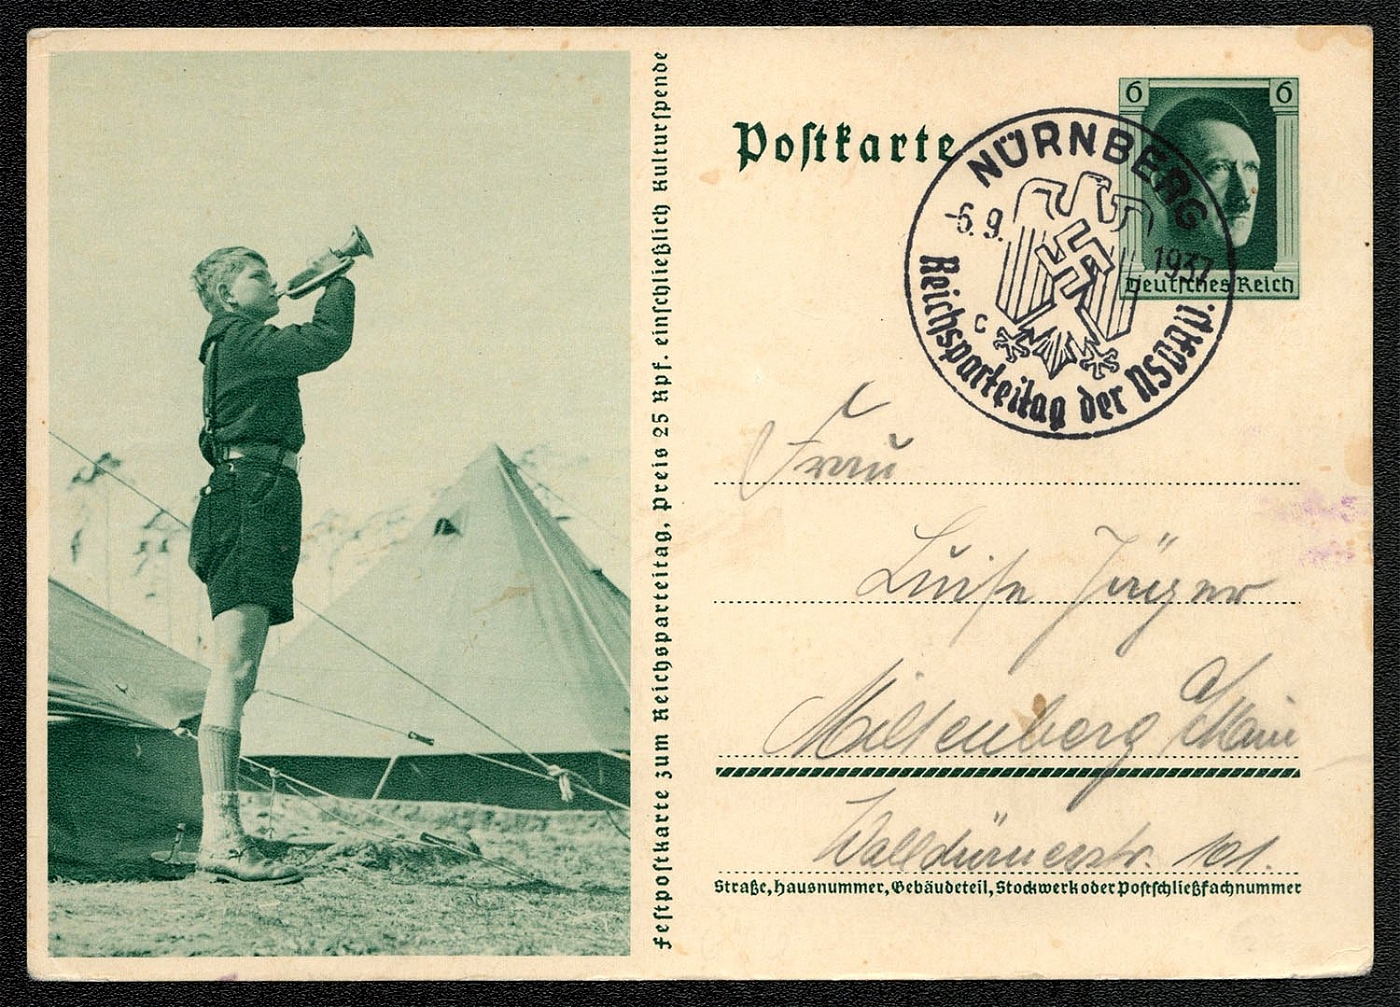 Festpostkarte zum Reichsparteitag. Preis 25 Rpf. einschließlich Kulturspende
Postkarte
6 6
Deutsches Reich
NÜRNBERG
-6.9. 1937
c
Reichsparteitag der NSDAP.
Frau
Luise Jäger
Miltenberg a/Main
Walldürnerstr. 101.
Straße, Hausnummer, Gebäudeteil, Stockwerk oder Postschließfachnummer